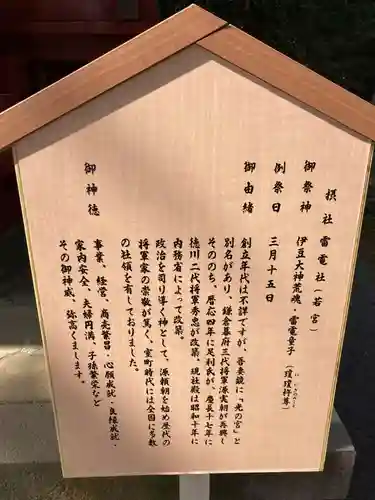 摂社 雷電社(若宮)
御祭神 伊豆大神荒魂・雷電童子(瓊瓊杵尊)
例祭日 三月十五日
御由緒 創立年代は不詳ですが、吾妻鏡に「光の宮」と
別名があり、鎌倉幕府三代将軍源実朝が再興し
そののち、暦応四年に足利氏が、慶長十七年に
徳川二代将軍秀忠が改築、現社殿は昭和十年に
内務省によって改築。
政治を司り導く神として、源頼朝を始め歴代の
将軍家の崇敬が篤く、室町時代には全国に多数
の社領を有しておりました。
御神徳 事業、経営、商売繁昌・心願成就・良縁成就・
家内安全、夫婦円満、子孫繁栄など
その御神威、弥高くまします。